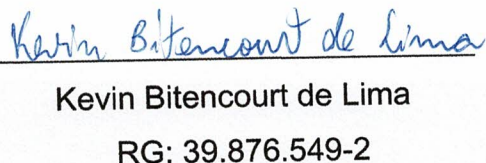 Kevin Bitencourt de Lima
Kevin Bitencourt de Lima
RG: 39.876.549-2